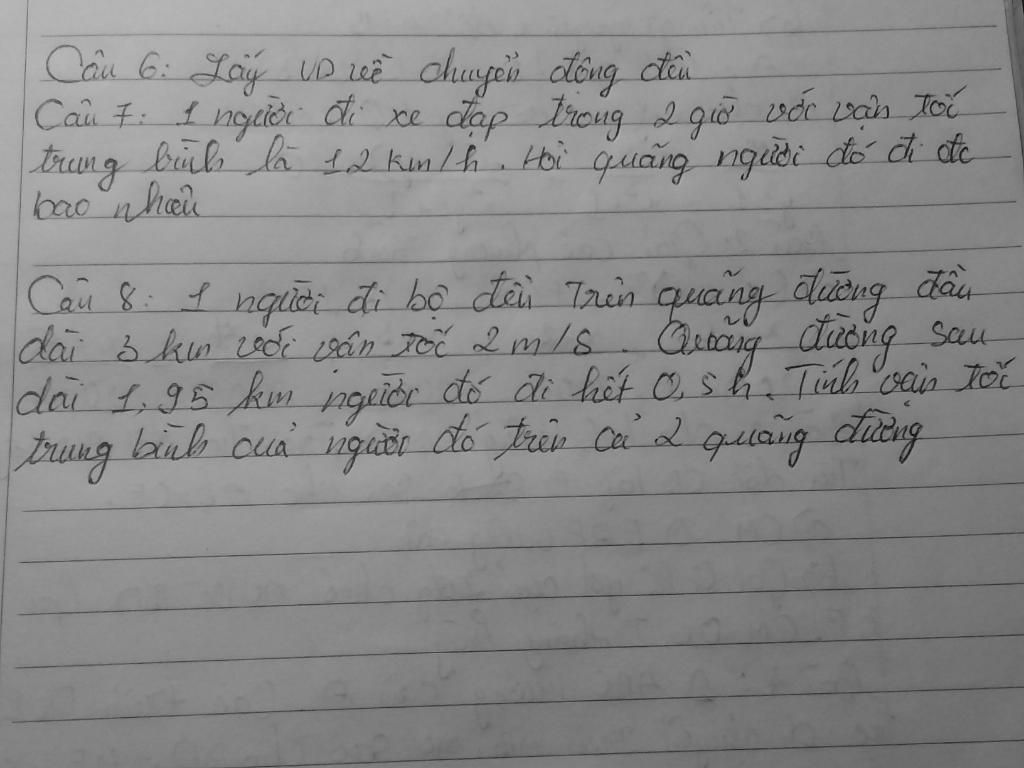 Câu 6: Lấy VD về chuyển động đều
Câu 7: 1 người đi xe đạp trong 2 giờ với vận tốc
trung bình là 12 km/h. Hỏi quãng người đó đi đc
bao nhiêu
Câu 8: 1 người đi bộ đều trên quãng đường đầu
dài 3 km với vận tốc 2 m/s. Quãng đường sau
dài 1,95 km người đó đi hết 0,5h. Tính vận tốc
trung bình của người đó trên cả 2 quãng đường